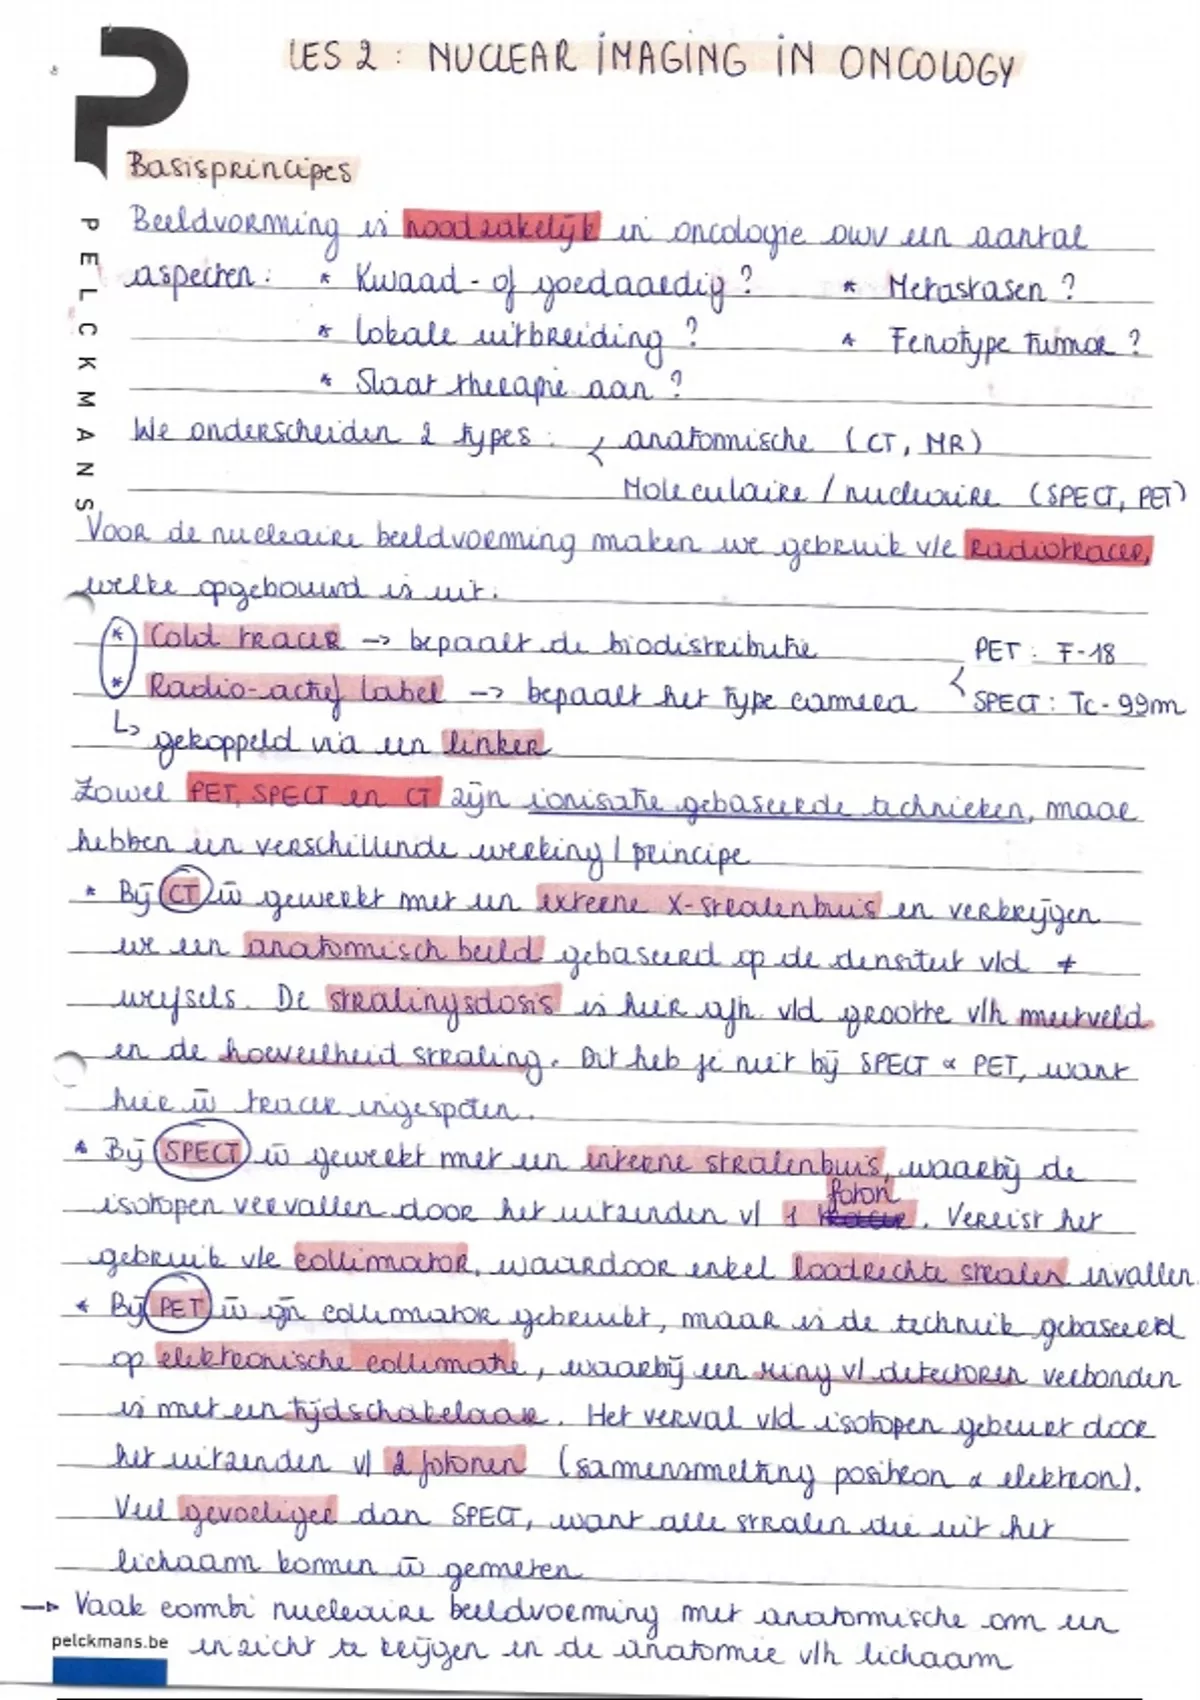 LES 2 : NUCLEAR IMAGING IN ONCOLOGY
PELCKMANS
Basisprincipes
Beeldvorming is noodzakelijk in oncologie owv een aantal
aspecten : * Kwaad- of goedaardig ? * Metastasen ?
* Lokale uitbreiding ? * Fenotype tumor ?
* Slaat therapie aan ?
We onderscheiden 2 types : < anatomische (CT, MR)
Moleculaire / nucleaire (SPECT, PET)
Voor de nucleaire beeldvorming maken we gebruik v/e radiotracer,
welke opgebouwd is uit:
* Cold tracer -> bepaalt de biodistributie PET : F-18
* Radio-actief label --> bepaalt het type camera < SPECT : Tc-99m
↳ gekoppeld via een linker
Zowel PET, SPECT en CT zijn ionisatie gebaseerde technieken, maar
hebben een verschillende werking / principe
* Bij CT w̄ gewerkt met een externe X-stralenbuis en verkrijgen
we een anatomisch beeld gebaseerd op de densiteit v/d ≠
weefsels. De stralingsdosis is hier afh. v/d grootte v/h meetveld
en de hoeveelheid straling. Dit heb je niet bij SPECT & PET, want
hier w̄ tracer ingespoten.
* Bij SPECT w̄ gewerkt met een interne stralenbuis, waarbij de
isotopen vervallen door het uitzenden v/ 1 foton. Vereist het
gebruik v/e collimator, waardoor enkel loodrechte stralen invallen.
* Bij PET w̄ gn collimator gebruikt, maar is de techniek gebaseerd
op elektronische collimatie, waarbij een ring v/ detectoren verbonden
is met een tijdschakelaar. Het verval v/d isotopen gebeurt door
het uitzenden v/ 2 fotonen (samensmelting positron & elektron).
Veel gevoeliger dan SPECT, want alle stralen die uit het
lichaam komen w̄ gemeten
→ Vaak combi nucleaire beeldvorming met anatomische om een
inzicht te krijgen in de anatomie v/h lichaam
pelckmans.be